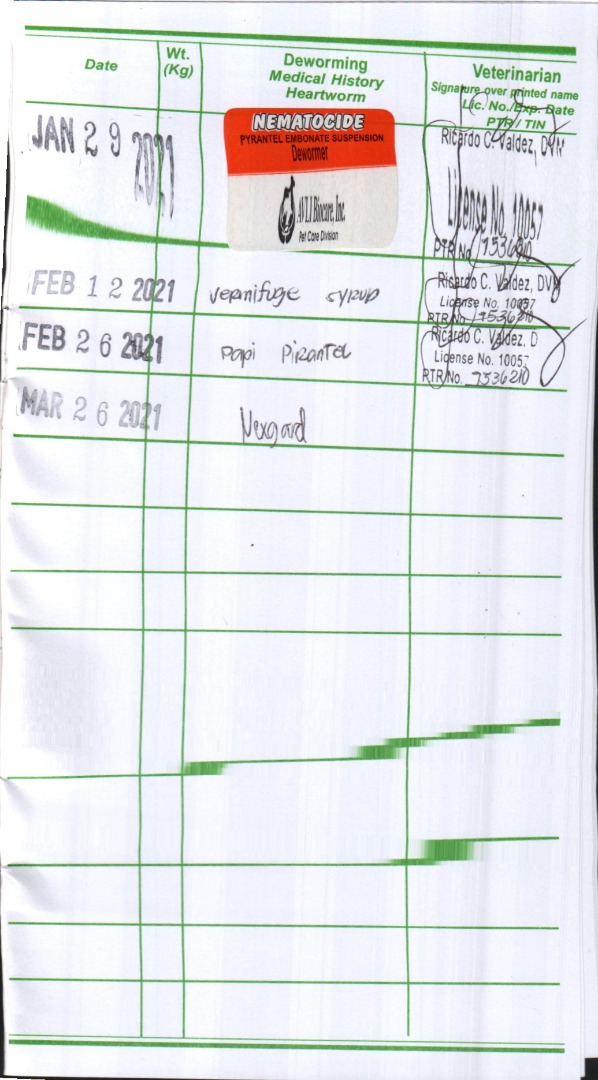 Date
Wt.
(Kg)
Deworming
Medical History
Heartworm
Veterinarian
Signature over printed name
Lic. No./Exp. Date
PTR / TIN
JAN 29 2021
NEMATOCIDE
PYRANTEL EMBONATE SUSPENSION
Dewormer
AVLI Biocare, Inc.
Pet Care Division
Ricardo C. Valdez, DVM
License No. 10057
PTR No. 7536210
FEB 12 2021
Vermifuge syrup
Ricardo C. Valdez, DVM
License No. 10057
PTR No. 7536210
FEB 26 2021
Papi Pirantel
Ricardo C. Valdez, D
License No. 10057
PTR No. 7536210
MAR 26 2021
Nexgard